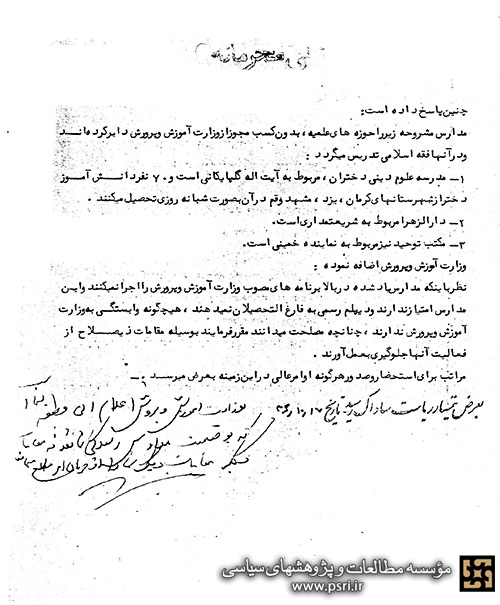 خیلی محرمانه
چنین پاسخ داده است:
مدارس مشروحه زیررا حوزه های علمیه، بدون کسب مجوز از وزارت آموزش وپرورش دایر کرده اند
ودر آنها فقه اسلامی تدریس میگردد:
۱- مدرسه علوم دینی دختران، مربوط به آیت اله گلپایگانی است و ۷۰ نفر دانش آموز
دختر از شهرستانهای کرمان، یزد، مشهد وقم در آن بصورت شبانه روزی تحصیل میکنند.
۲- دار الزهرا مربوط به شریعتمداری است.
۳- مکتب توحید نیز مربوط به نماینده خمینی است.
وزارت آموزش وپرورش اضافه نموده:
نظر باینکه مدارس یاد شده در بالا برنامه های مصوب وزارت آموزش وپرورش را اجرا نمیکنند واین
مدارس امتیاز ندارند ودیپلم رسمی به فارغ التحصیلان نمیدهند، هیچگونه وابستگی به وزارت
آموزش وپرورش ندارند، چنانچه مصلحت میدانند مقرر فرمایند بوسیله مقامات ذیصلاح از
فعالیت آنها جلوگیری بعمل آورند.
مراتب برای استحضار وصدور هرگونه اوامر عالی در این زمینه بعرض میرسد.
بعرض تیمسار ریاست ساواک رسید تاریخ
وزارت آموزش و پرورش اعلام
مؤسسه مطالعات و پژوهشهای سیاسی
www.psri.ir